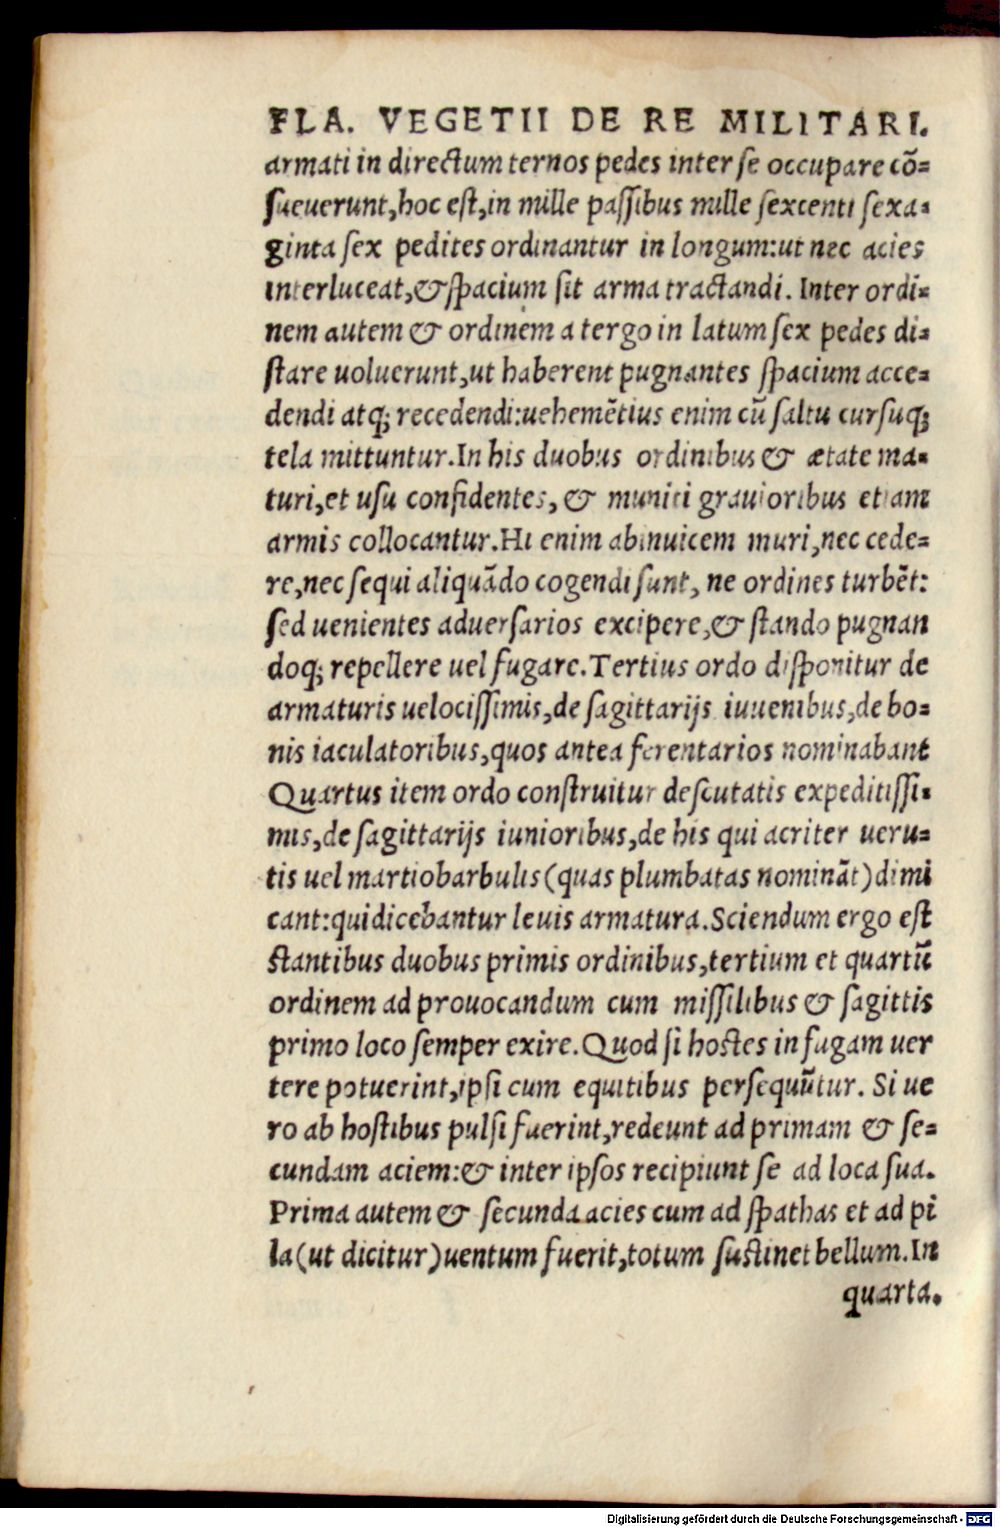 FLA. VEGETII DE RE MILITARI.
armati in directum ternos pedes inter se occupare cõ=
sueuerunt,hoc est,in mille passibus mille sexcenti sexa=
ginta sex pedites ordinantur in longum:ut nec acies
interluceat,& spacium sit arma tractandi. Inter ordi=
nem autem & ordinem a tergo in latum sex pedes di=
stare uoluerunt,ut haberent pugnantes spacium acce=
dendi atq; recedendi:uehemẽtius enim cũ saltu cursuq;
tela mittuntur.In his duobus ordinibus & ætate ma=
turi,et usu confidentes, & muniti grauioribus etiam
armis collocantur.Hi enim abinuicem muri,nec cede=
re,nec sequi aliquãdo cogendi sunt, ne ordines turbẽt:
sed uenientes aduersarios excipere,& stando pugnan
doq; repellere uel fugare.Tertius ordo disponitur de
armaturis uelocissimis,de sagittarijs iuuenibus,de bo=
nis iaculatoribus,quos antea ferentarios nominabant
Quartus item ordo construitur de scutatis expeditissi=
mis,de sagittarijs iunioribus,de his qui acriter ueru=
tis uel martiobarbulis(quas plumbatas nominãt)dimi
cant:qui dicebantur leuis armatura.Sciendum ergo est
stantibus duobus primis ordinibus,tertium et quartũ
ordinem ad prouocandum cum missilibus & sagittis
primo loco semper exire.Quod si hostes in fugam uer
tere potuerint,ipsi cum equitibus persequũtur. Si ue
ro ab hostibus pulsi fuerint,redeunt ad primam & se=
cundam aciem:& inter ipsos recipiunt se ad loca sua.
Prima autem & secunda acies cum ad spathas et ad pi
la(ut dicitur)uentum fuerit,totum sustinet bellum.In
quarta.
Digitalisierung gefördert durch die Deutsche Forschungsgemeinschaft - DFG